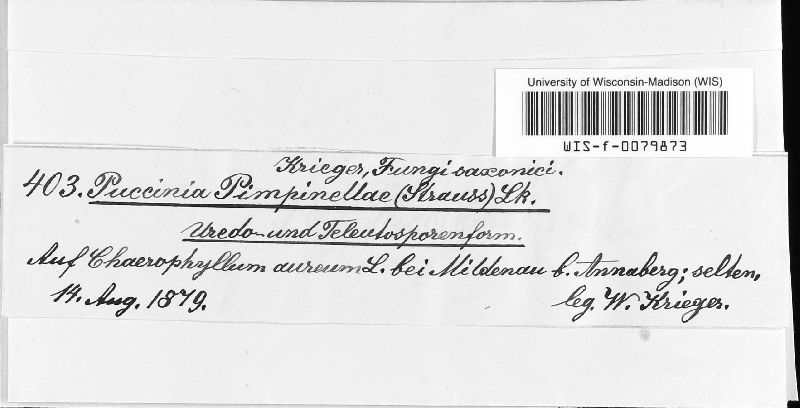 University of Wisconsin-Madison (WIS)
WIS-f-0079873
Krieger, Fungi saxonici.
403. Puccinia Pimpinellae (Strauss) Lk.
Uredo- und Teleutosporenform.
Auf Chaerophyllum aureum L. bei Mildenau b. Annaberg; selten,
14. Aug. 1879. leg. W. Krieger.